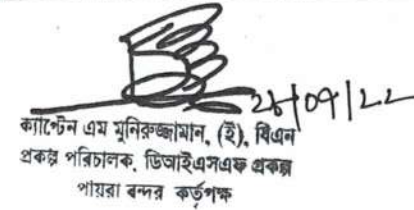 ২৮/০৭/২২
ক্যাপ্টেন এম মুনিরুজ্জামান, (ই), বিএন
প্রকল্প পরিচালক, ডিআইএসএফ প্রকল্প
পায়রা বন্দর কর্তৃপক্ষ